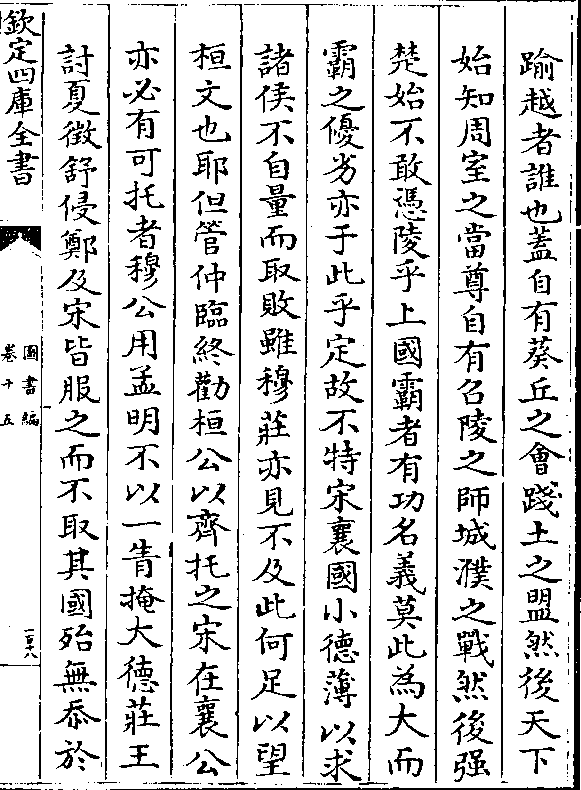 踰越者誰也蓋自有葵丘之會踐土之盟然後天下
始知周室之當尊自有召陵之師城濮之戰然後强
楚始不敢憑陵乎上國霸者有功名義莫此為大而
霸之優劣亦于此乎定故不特宋襄國小德薄以求
諸侯不自量而取敗雖穆莊亦見不及此何足以望
桓文也耶但管仲臨終勸桓公以齊托之宋在襄公
亦必有可托者穆公用孟明不以一眚掩大德莊王
討夏徵舒侵鄭及宋皆服之而不取其國殆無忝於
欽定四庫全書
圖書編
卷十五
一百六